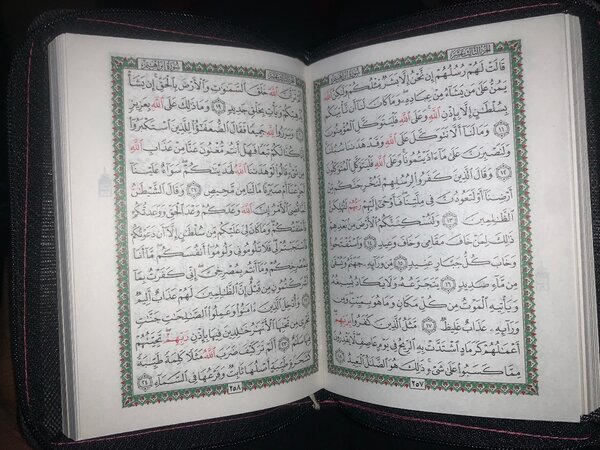 الجزء الثالث عشر
سورة إبراهيم
قَالَتْ لَهُمْ رُسُلُهُمْ إِن نَّحْنُ إِلَّا بَشَرٌ مِّثْلُكُمْ وَلَٰكِنَّ ٱللَّهَ
يَمُنُّ عَلَىٰ مَن يَشَآءُ مِنْ عِبَادِهِۦ وَمَا كَانَ لَنَآ أَن نَّأْتِيَكُم
بِسُلْطَٰنٍ إِلَّا بِإِذْنِ ٱللَّهِ وَعَلَى ٱللَّهِ فَلْيَتَوَكَّلِ ٱلْمُؤْمِنُونَ
١١ وَمَا لَنَآ أَلَّا نَتَوَكَّلَ عَلَى ٱللَّهِ وَقَدْ هَدَىٰنَا سُبُلَنَا
وَلَنَصْبِرَنَّ عَلَىٰ مَآ ءَاذَيْتُمُونَا وَعَلَى ٱللَّهِ فَلْيَتَوَكَّلِ ٱلْمُتَوَكِّلُونَ
١٢ وَقَالَ ٱلَّذِينَ كَفَرُوا۟ لِرُسُلِهِمْ لَنُخْرِجَنَّكُم مِّنْ
أَرْضِنَآ أَوْ لَتَعُودُنَّ فِى مِلَّتِنَا فَأَوْحَىٰٓ إِلَيْهِمْ رَبُّهُمْ لَنُهْلِكَنَّ
ٱلظَّٰلِمِينَ ١٣ وَلَنُسْكِنَنَّكُمُ ٱلْأَرْضَ مِنۢ بَعْدِهِمْ
ذَٰلِكَ لِمَنْ خَافَ مَقَامِى وَخَافَ وَعِيدِ ١٤ وَٱسْتَفْتَحُوا۟
وَخَابَ كُلُّ جَبَّارٍ عَنِيدٍ ١٥ مِّن وَرَآئِهِۦ جَهَنَّمُ وَيُسْقَىٰ
مِن مَّآءٍ صَدِيدٍ ١٦ يَتَجَرَّعُهُۥ وَلَا يَكَادُ يُسِيغُهُۥ
وَيَأْتِيهِ ٱلْمَوْتُ مِن كُلِّ مَكَانٍ وَمَا هُوَ بِمَيِّتٍ وَمِن
وَرَآئِهِۦ عَذَابٌ غَلِيظٌ ١٧ مَّثَلُ ٱلَّذِينَ كَفَرُوا۟ بِرَبِّهِمْ
أَعْمَٰلُهُمْ كَرَمَادٍ ٱشْتَدَّتْ بِهِ ٱلرِّيحُ فِى يَوْمٍ عَاصِفٍ لَّا يَقْدِرُونَ
مِمَّا كَسَبُوا۟ عَلَىٰ شَىْءٍ ذَٰلِكَ هُوَ ٱلضَّلَٰلُ ٱلْبَعِيدُ ١٨
٢٥٧
سورة إبراهيم
أَلَمْ تَرَ أَنَّ ٱللَّهَ خَلَقَ ٱلسَّمَٰوَٰتِ وَٱلْأَرْضَ بِٱلْحَقِّ إِن يَشَأْ
يُذْهِبْكُمْ وَيَأْتِ بِخَلْقٍ جَدِيدٍ ١٩ وَمَا ذَٰلِكَ عَلَى ٱللَّهِ بِعَزِيزٍ
٢٠ وَبَرَزُوا۟ لِلَّهِ جَمِيعًا فَقَالَ ٱلضُّعَفَٰٓؤُا۟ لِلَّذِينَ ٱسْتَكْبَرُوٓا۟
إِنَّا كُنَّا لَكُمْ تَبَعًا فَهَلْ أَنتُم مُّغْنُونَ عَنَّا مِنْ عَذَابِ ٱللَّهِ
مِن شَىْءٍ قَالُوا۟ لَوْ هَدَىٰنَا ٱللَّهُ لَهَدَيْنَٰكُمْ سَوَآءٌ عَلَيْنَآ
أَجَزِعْنَآ أَمْ صَبَرْنَا مَا لَنَا مِن مَّحِيصٍ ٢١ وَقَالَ ٱلشَّيْطَٰنُ
لَمَّا قُضِىَ ٱلْأَمْرُ إِنَّ ٱللَّهَ وَعَدَكُمْ وَعْدَ ٱلْحَقِّ وَوَعَدتُّكُمْ
فَأَخْلَفْتُكُمْ وَمَا كَانَ لِىَ عَلَيْكُم مِّن سُلْطَٰنٍ إِلَّآ أَن دَعَوْتُكُمْ
فَٱسْتَجَبْتُمْ لِى فَلَا تَلُومُونِى وَلُومُوٓا۟ أَنفُسَكُم مَّآ أَنَا۠
بِمُصْرِخِكُمْ وَمَآ أَنتُم بِمُصْرِخِىَّ إِنِّى كَفَرْتُ بِمَآ
أَشْرَكْتُمُونِ مِن قَبْلُ إِنَّ ٱلظَّٰلِمِينَ لَهُمْ عَذَابٌ أَلِيمٌ
٢٢ وَأُدْخِلَ ٱلَّذِينَ ءَامَنُوا۟ وَعَمِلُوا۟ ٱلصَّٰلِحَٰتِ جَنَّٰتٍ
تَجْرِى مِن تَحْتِهَا ٱلْأَنْهَٰرُ خَٰلِدِينَ فِيهَا بِإِذْنِ رَبِّهِمْ تَحِيَّتُهُمْ
فِيهَا سَلَٰمٌ ٢٣ أَلَمْ تَرَ كَيْفَ ضَرَبَ ٱللَّهُ مَثَلًا كَلِمَةً طَيِّبَةً
كَشَجَرَةٍ طَيِّبَةٍ أَصْلُهَا ثَابِتٌ وَفَرْعُهَا فِى ٱلسَّمَآءِ ٢٤
٢٥٨